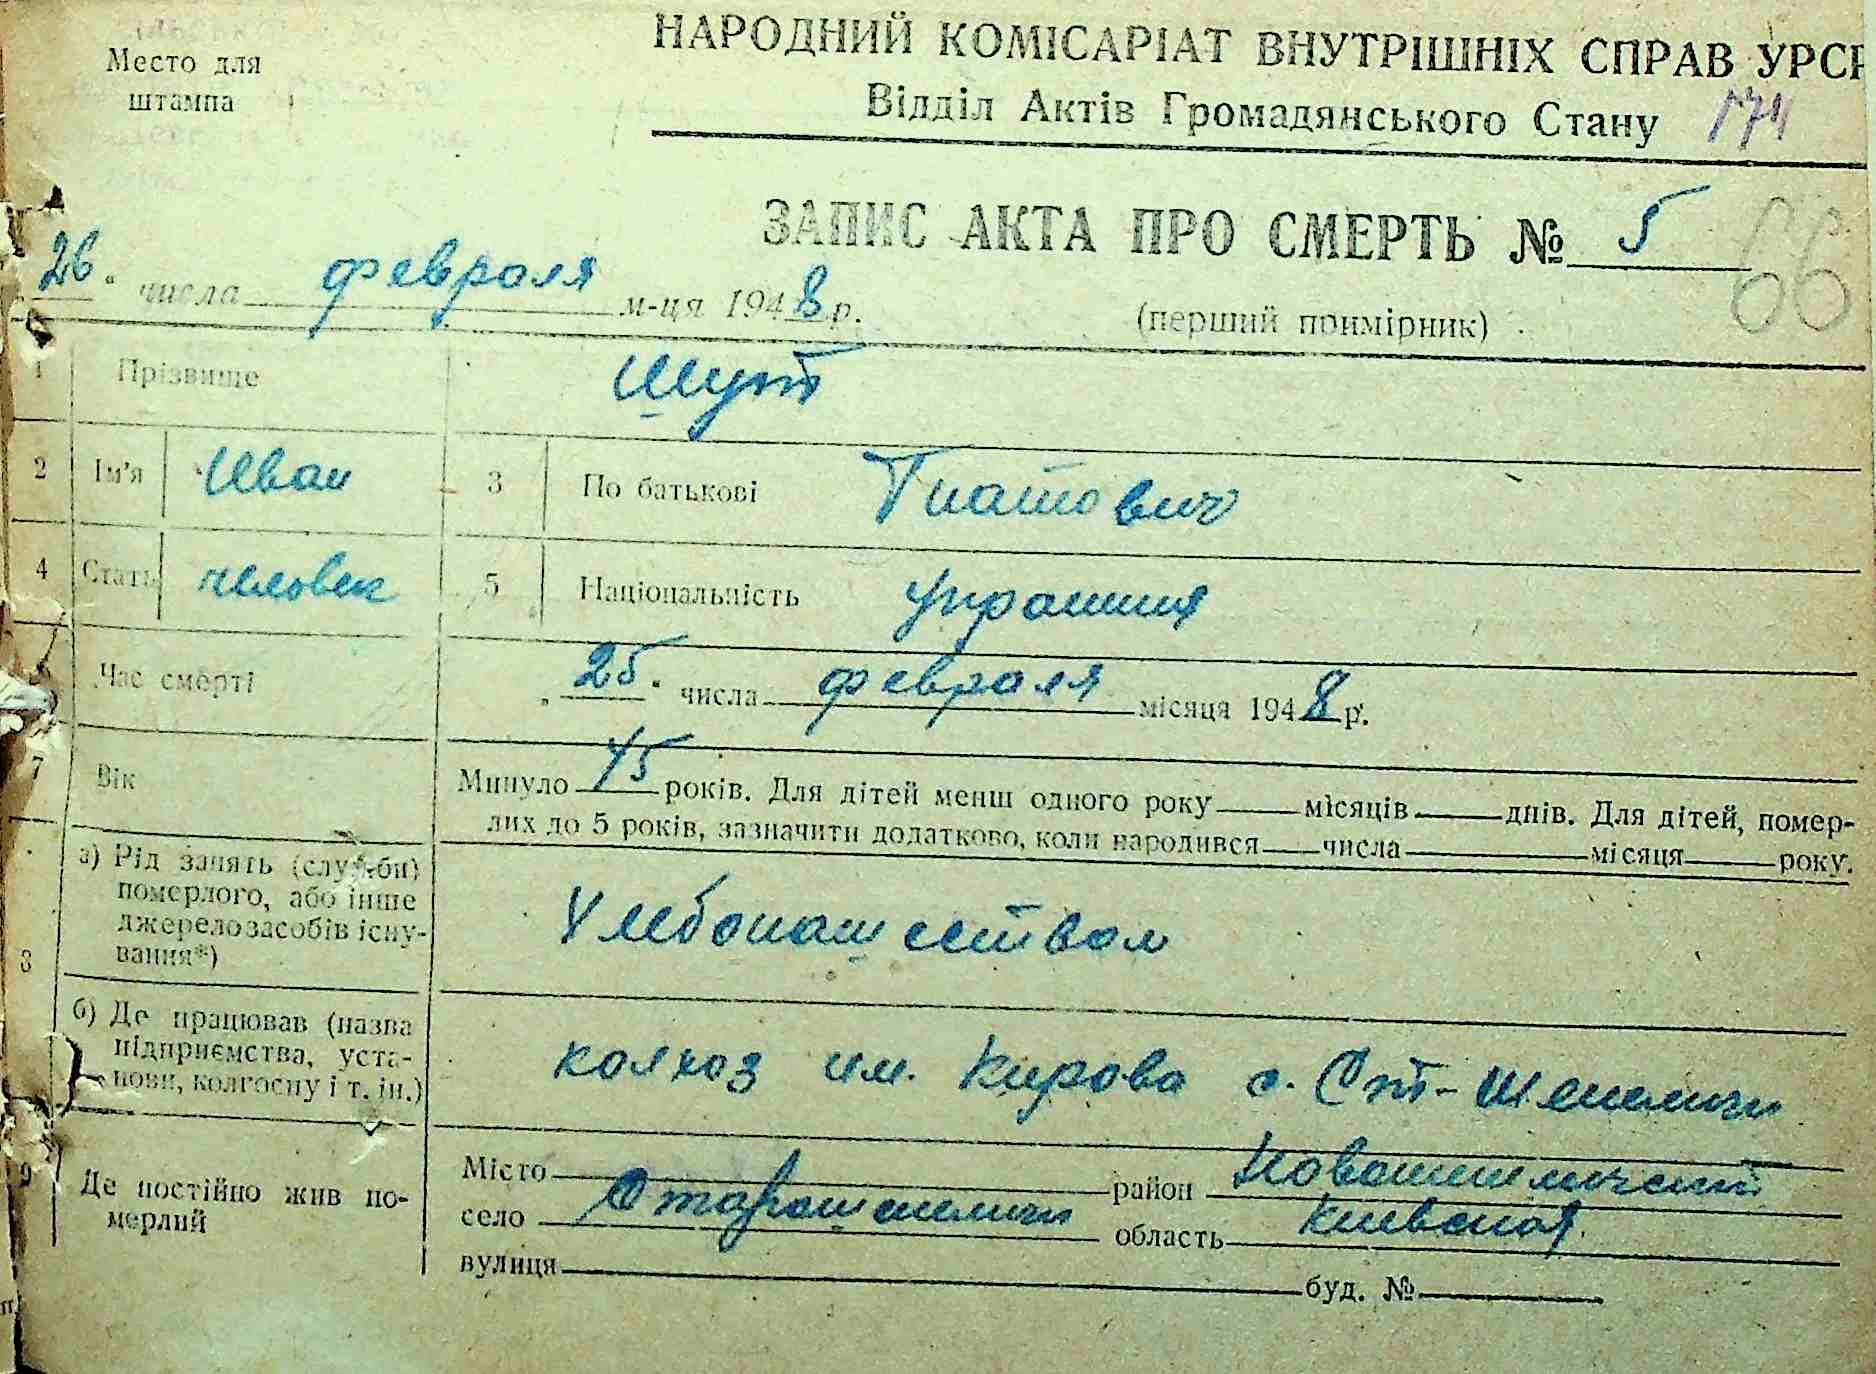 Место для
штампа
НАРОДНИЙ КОМІСАРІАТ ВНУТРІШНІХ СПРАВ УРСР
Відділ Актів Громадянського Стану 174
ЗАПИС АКТА ПРО СМЕРТЬ № 5 66
26 " числа февраля м-ця 1948 р.
(перший примірник)
1 Прізвище Шут
2 Ім'я Иван 3 По батькові
4 Стать человек 5 Національність
Час смерті „ 25 " числа февраля місяця 1948 р.
7 Вік Минуло 45 років. Для дітей менш одного року місяців днів. Для дітей, помер-
лих до 5 років, зазначити додатково, коли народився числа місяця року.
8 а) Рід занять (служби)
померлого, або інше
джерело засобів існу-
вання*)
Хлебопашеством
б) Де працював (назва
підприємства, уста-
нови, колгоспу і т. ін.)
колхоз им. Кирова с. Ст-Шепеличи
9 Де постійно жив по-
мерлий
Місто район Новошепеличский
село Старошепеличи область Киевская
вулиця буд. №